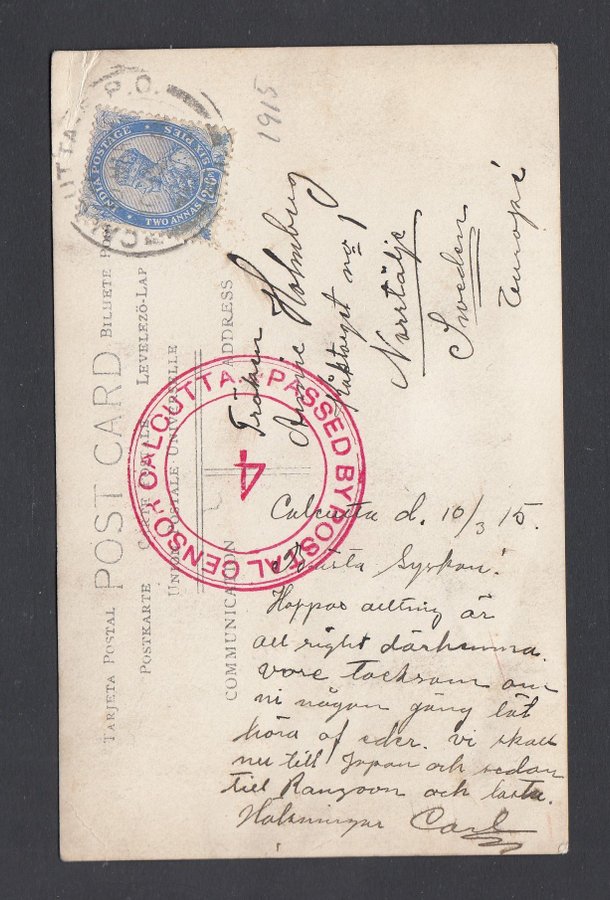 1915
CALCUTTA G.P.O.
INDIA POSTAGE
SIX PIES
TWO ANNAS 2As.6p.
TARJETA POSTAL POST CARD BILHETE POSTAL
POSTKARTE CARTE POSTALE LEVELEZÖ-LAP
UNION POSTALE UNIVERSELLE
COMMUNICATION
ADDRESS
PASSED BY POSTAL CENSOR, CALCUTTA.
4
Fröken
Annie Holmberg
no 1
Norrtälje
Sweden
Europe
Calcutta d. 10/3 15.
Bästa Syskon!
Hoppas allting är
all right därhemma.
vore tacksam om
ni någon gång lät
höra af eder. vi skall
nu till Japan och sedan
till Rangoon och lasta.
Hälsningar Carl